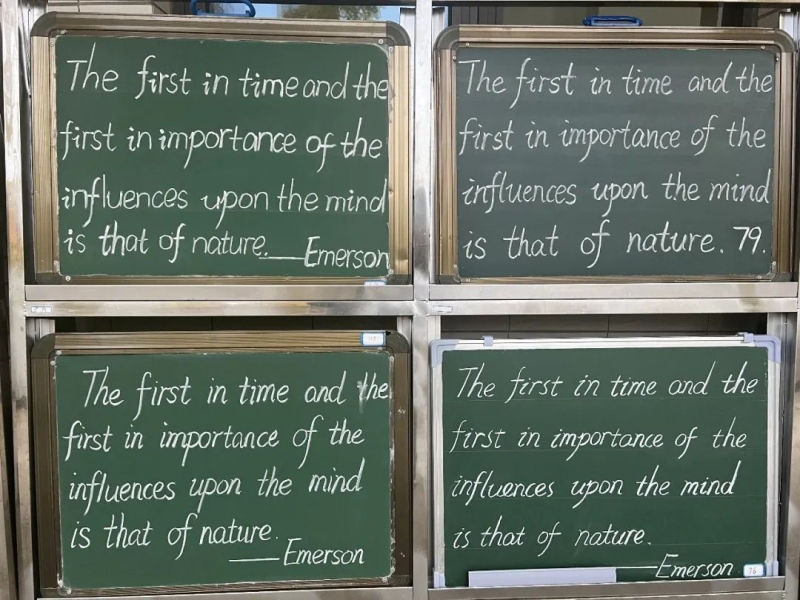 The first in time and the
first in importance of the
influences upon the mind
is that of nature.
——Emerson
The first in time and the
first in importance of the
influences upon the mind
is that of nature. 79.
The first in time and the
first in importance of the
influences upon the mind
is that of nature.
——Emerson
The first in time and the
first in importance of the
influences upon the mind
is that of nature.
——Emerson
76